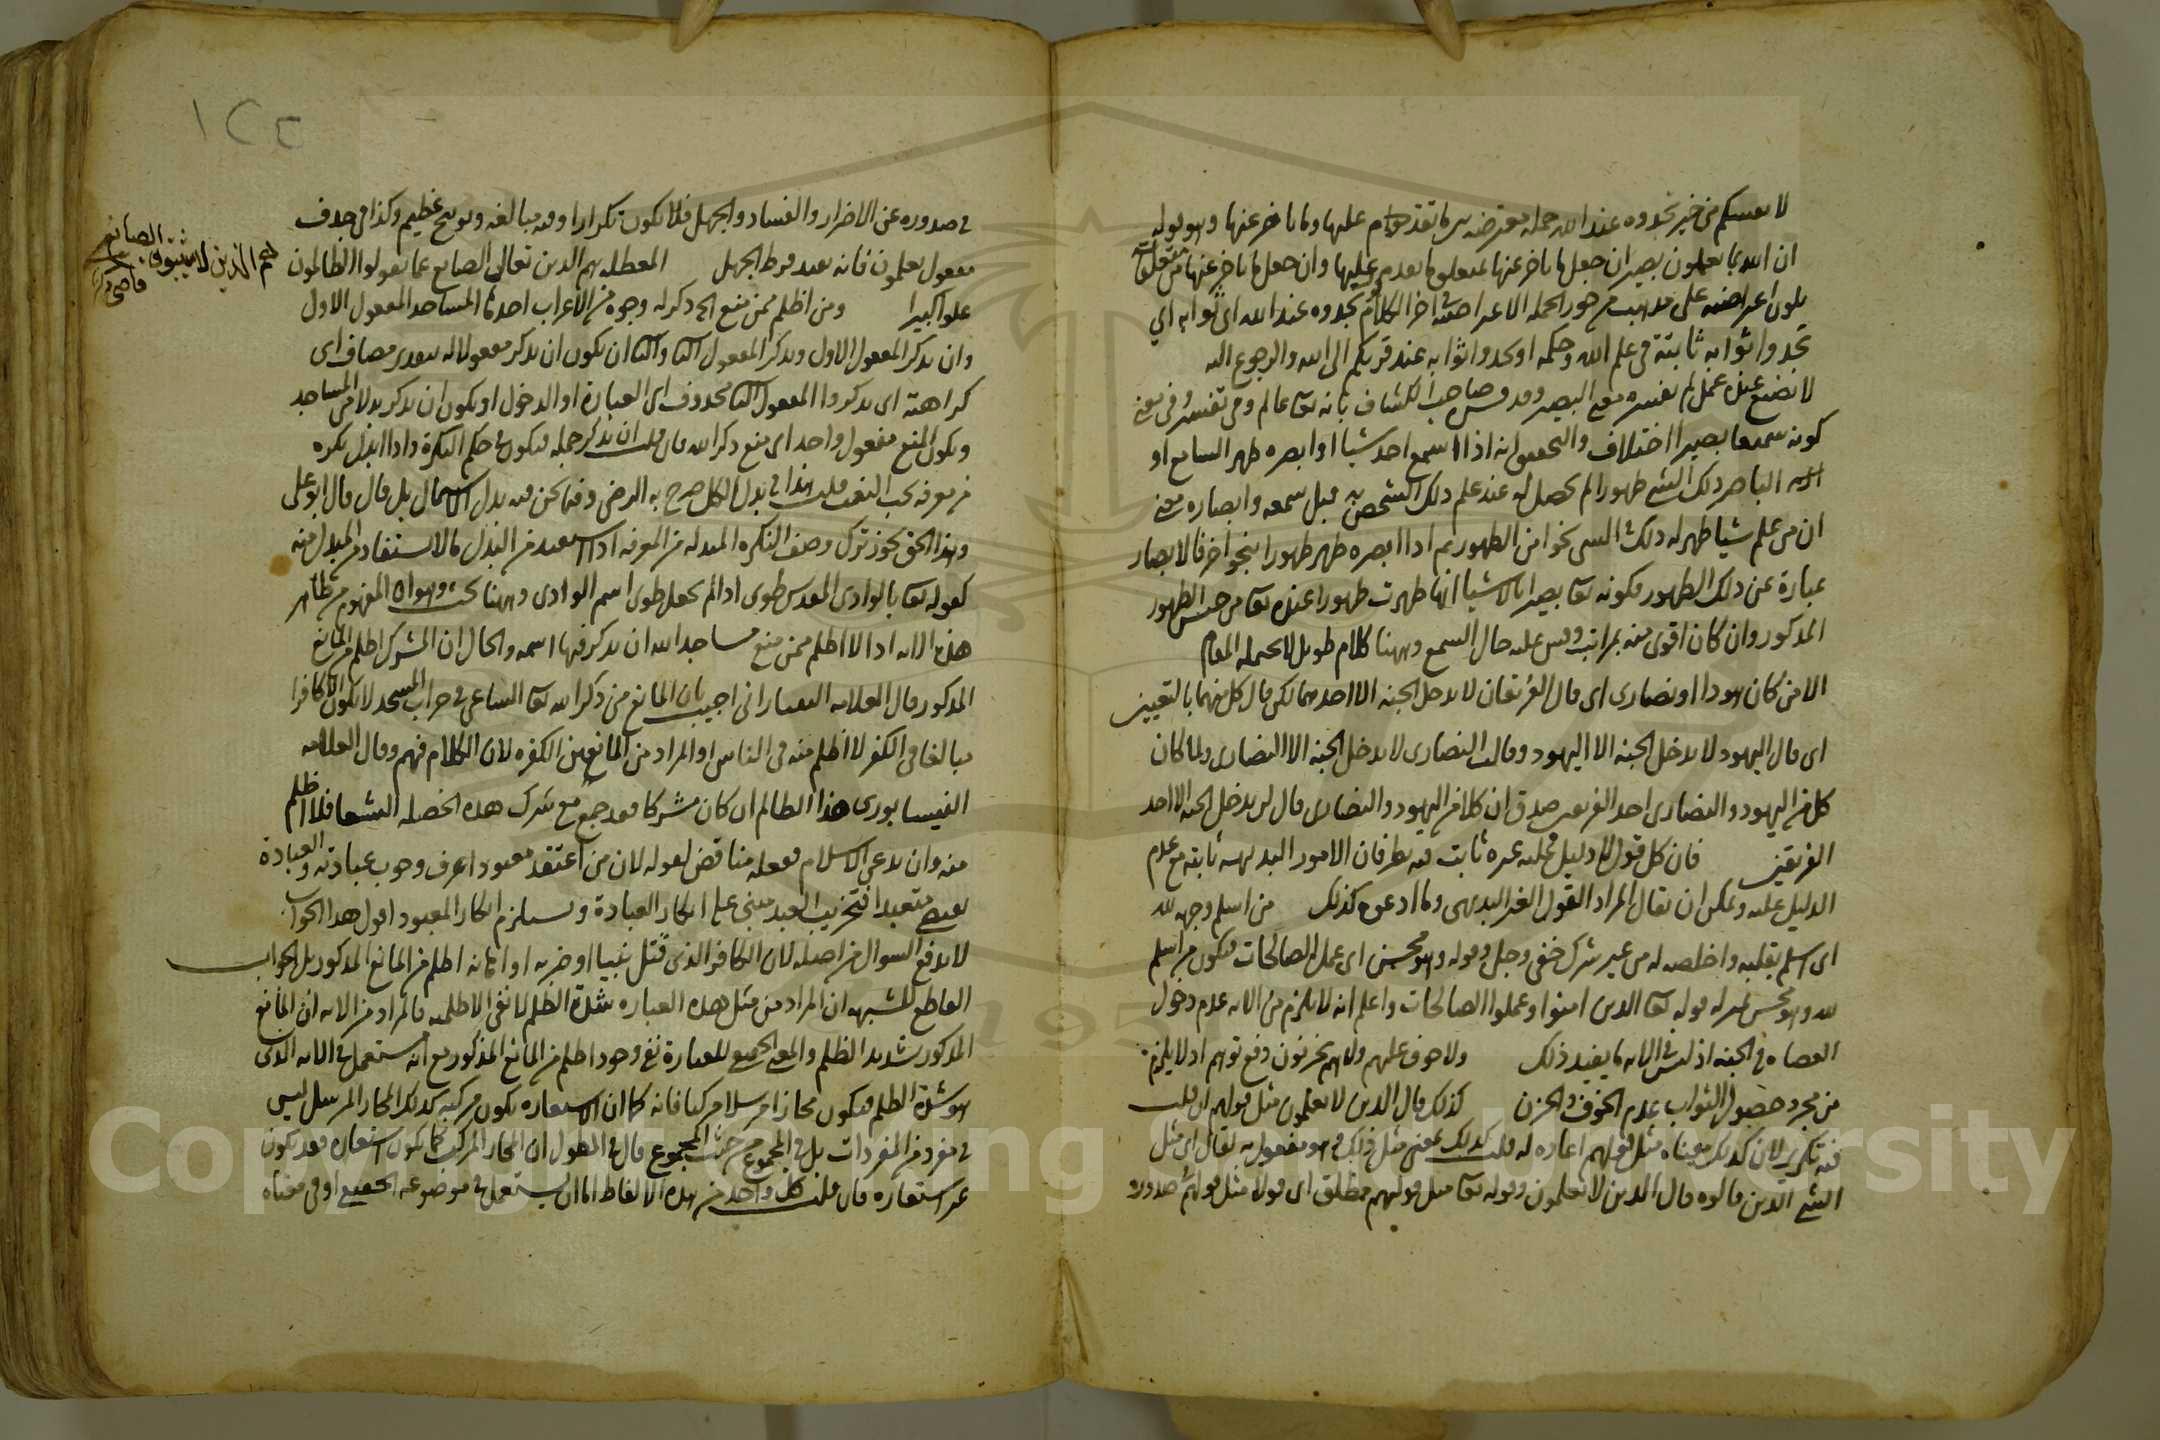 لانفسكم من خير تجدوه عند الله جملة معترضة بين ما تقدم عليها وما تاخر عنها وهو قوله
ان الله بما تعملون بصير ان جعل ما تاخر عنها متعلقا بما تقدم عليها وان جعل ما تاخر عنها من متعلقات
يكون اعتراضه على مذهب من جوز الجملة الاعتراضية في اخر الكلام تجدوه عند الله اي ثوابه اي
تجدوا ثوابه ثابتة في علم الله وحكمه او تجدوا ثوابه عند قربكم الى الله والرجوع اليه
لا يضيع عنده عمل لم يفسره بمعنى البصير وقد فسر صاحب الكشاف بانه تعا عالم وفي تفسيره وفي معنى
كونه سميعا بصيرا اختلاف والتحقيق انه اذا اسمع احد شيا او ابصره ظهر السامع او
الباصر ذلك الشي ظهورا لم يحصل له عند علم ذلك الشخص به قبل سمعه وابصاره بمعنى
ان من علم شيا ظهر له ذلك الشي نحوا من الظهور ثم اذا ابصره ظهر ظهورا بنحو اخر فالابصار
عبارة عن ذلك الظهور فكونه تعا بصيرا بالاشيا انها ظهرت ظهورا عنده تعا من جنس الظهور
المذكور وان كان اقوى منه بمراتب وقس عليه حال السمع وههنا كلام طويل لا يحتمله المقام
الا من كان هودا او نصارى اي قال الفريقان لا يدخل الجنة الا احدهما لكن قال كل منهما بالتعيين
اي قال اليهود لا يدخل الجنة الا اليهود وقالت النصارى لا يدخل الجنة الا النصارى ولما كان
كل من اليهود والنصارى احد الفريقين صدق ان كلا من اليهود والنصارى قال لن يدخل الجنة الا احد
الفريقين فان كل قول لا دليل عليه غير ثابت فيه نظر فان الامور البديهية ثابتة مع عدم
الدليل عليه ويمكن ان يقال المراد القول الغير البديهي وما ادعوه كذلك من اسلم وجهه لله
اي اسلم بقلبه واخلصه له من غير شرك خفي وجلي وقوله وهو محسن اي عمل الصالحات فيكون من اسلم
لله وهو محسن بمنزلة قوله تعا الذين امنوا وعملوا الصالحات واعلم انه لا يلزم من الاية عدم دخول
العصاة في الجنة اذ ليس في الاية ما يفيد ذلك ولا خوف عليهم ولا هم يحزنون دفع توهم اذ لا يلزم
من مجرد حصول الثواب عدم الخوف والحزن كذلك قال الذين لا يعلمون مثل قولهم ان قلت
فيه تكرير لان كذلك معناه مثل قولهم اعاده له قلت كذلك بمعنى مثل ذلك في هو مفعول به لقال اي مثل
الشي الذين قالوه قال الذين لا يعلمون وقوله تعا مثل قولهم مطلق اي قولا مثل قولهم صدوره
١٢٢
في صدوره عن الاضرار والفساد والجهل فلا يكون تكرارا وفيه مبالغة وتوبيخ عظيم وكذا في حذف
مفعول يعلمون فانه يفيد فرط الجهل المعطلة هم الذين تعالى الصانع عما يقولوا الظالمون
علوا كبيرا ومن اظلم ممن منع الخ ذكر له وجوه من الاعراب احدها المساجد المفعول الاول
وان يذكر المفعول الاول ويذكر المفعول الثا والثا ان يكون ان يذكر مفعولا له بتقدير مضاف اي
كراهة اي يذكروا المفعول الثا محذوف اي العبادة او الدخول او يكون ان يذكر بدلا من المساجد
ويكون المنع مفعول واحد اي منع ذكر الله فان قلت ان يذكر جملة فيكون في حكم النكرة واذا ابدل نكرة
من معرفة يجب النعت قلت هذا في بدل الكل صرح به الرضي وفيما نحن فيه بدل الاشتمال بل قال قال ابو علي
وهو الحق يجوز ترك وصف النكرة المبدلة من المعرفة اذا استفيد من البدل ما لا يستفاد من المبدل منه
كقوله تعا بالوادي المقدس طوى اذا لم يجعل طوى اسم الوادي وههنا بحث وهو ان المفهوم من ظاهر
هذه الاية اذ لا اظلم ممن منع مساجد الله ان يذكر فيها اسمه والحال ان المشرك اظلم من المانع
المذكور قال العلامة التفتازاني اجيب بان المانع من ذكر الله تعا الساعي في خراب المسجد لا يكون الا كافرا
مبالغا في الكفر لا اظلم منه في الناس او المراد من المانع من الكفرة لان الكلام فيهم وقال العلامة
النيسابوري هذا الظالم ان كان مشركا فقد جمع مع شرك هذه الخصلة الشنعا فلا اظلم
منه وان يدعي الاسلام ففعله مناقض لقوله لان من اعتقد معبودا عرف وجوب عبادته والعبادة
تقتضي متعبدا فتخريب المتعبد مبني على انكار العبادة ويستلزم انكار المعبود اقول هذا الجواب
لا يدفع السوال من اصله لان الكافر الذي قتل نبيا او ضربه او اهانه اظلم من المانع المذكور بل الجواب
القاطع للشبهة ان المراد من مثل هذه العبارة شدة الظلم لا نفي الاظلمية فالمراد من الاية ان المانع
المذكور شديد الظلم والمعنى الحقيقي للعبارة نفي وجود اظلم من المانع المذكور مع انه مستعمل في الاية الذي
هو شدة الظلم فيكون مجازا مرسلا مركبا فانه كما ان الاستعارة يكون مركبة كذلك المجاز المرسل ليس
في مفرد من المفردات بل في المجموع من حيث المجموع قال في المطول ان المجاز المركب كما يكون استعارة فقد يكون
غير استعارة فان قلت كل واحد من هذه الالفاظ اما ان يستعمل في موضوعه الحقيقي او في معناه